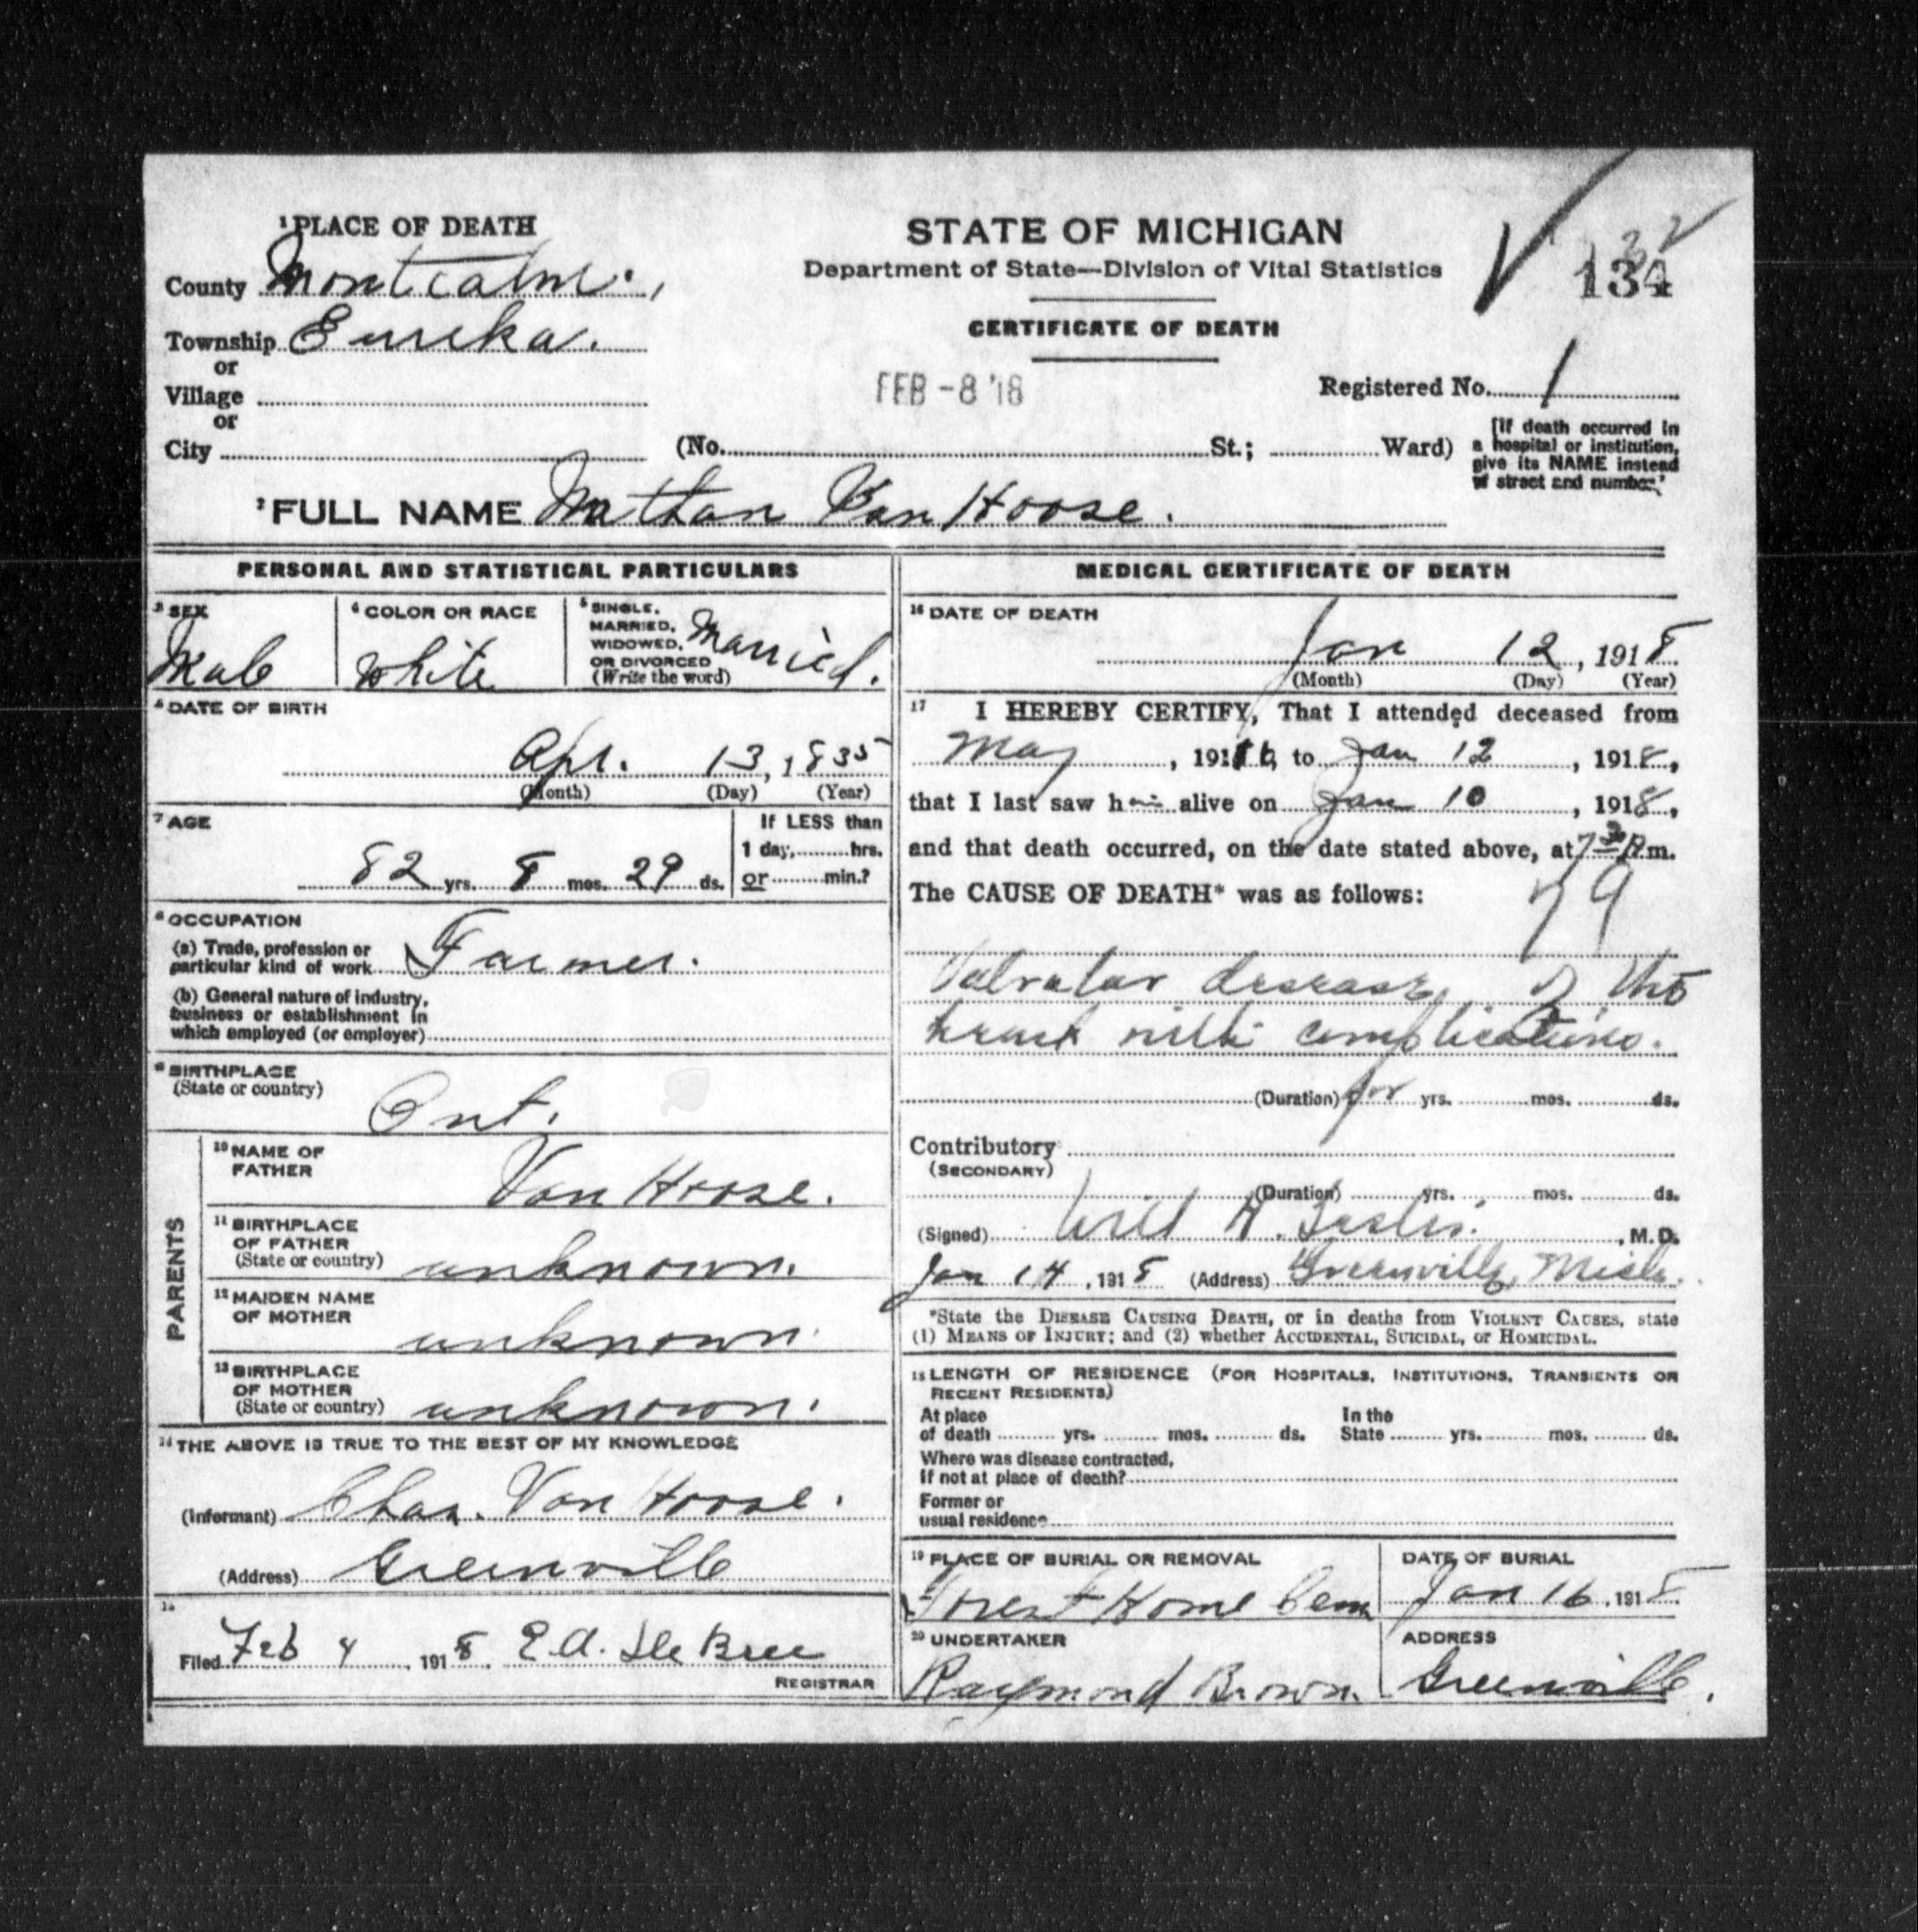 ¹PLACE OF DEATH
County Montcalm.
Township Eureka.
or
Village
or
City
STATE OF MICHIGAN
Department of State—Division of Vital Statistics
CERTIFICATE OF DEATH
FEB -8 '18
134
Registered No. 1
(No. St.; Ward)
[If death occurred in
a hospital or institution,
give its NAME instead
of street and number.]
²FULL NAME Nathan Van Hoose.
PERSONAL AND STATISTICAL PARTICULARS
³SEX
Male
⁴COLOR OR RACE
White
⁵SINGLE,
MARRIED,
WIDOWED,
OR DIVORCED
(Write the word)
Married.
⁶DATE OF BIRTH
Apl. 13, 1835
(Month) (Day) (Year)
⁷AGE
82 yrs. 8 mos. 29 ds.
If LESS than
1 day, hrs.
or min.?
⁸OCCUPATION
(a) Trade, profession or
particular kind of work Farmer.
(b) General nature of industry,
business or establishment in
which employed (or employer)
⁹BIRTHPLACE
(State or country)
Ont.
PARENTS
¹⁰NAME OF
FATHER
Van Hoose.
¹¹BIRTHPLACE
OF FATHER
(State or country) unknown.
¹²MAIDEN NAME
OF MOTHER
unknown.
¹³BIRTHPLACE
OF MOTHER
(State or country) unknown.
¹⁴THE ABOVE IS TRUE TO THE BEST OF MY KNOWLEDGE
(Informant) Chas. Van Hoose.
(Address) Greenville
¹⁵
Filed Feb 4, 1918. E.A. De Bree
REGISTRAR
MEDICAL CERTIFICATE OF DEATH
¹⁶DATE OF DEATH
Jan 12, 1918.
(Month) (Day) (Year)
¹⁷ I HEREBY CERTIFY, That I attended deceased from
May, 1916, to Jan 12, 1918,
that I last saw him alive on Jan 10, 1918,
and that death occurred, on the date stated above, at 7³⁰ P.m.
The CAUSE OF DEATH* was as follows:
79
Valvular disease of the
heart with complications.
(Duration) yrs. mos. ds.
Contributory
(SECONDARY)
(Duration) yrs. mos. ds.
(Signed) Will H. , M.D.
Jan 14, 1918 (Address) Greenville, Mich.
*State the DISEASE CAUSING DEATH, or in deaths from VIOLENT CAUSES, state
(1) MEANS OF INJURY; and (2) whether ACCIDENTAL, SUICIDAL, or HOMICIDAL.
¹⁸LENGTH OF RESIDENCE (FOR HOSPITALS, INSTITUTIONS, TRANSIENTS OR
RECENT RESIDENTS)
At place
of death yrs. mos. ds.
In the
State yrs. mos. ds.
Where was disease contracted,
If not at place of death?
Former or
usual residence
¹⁹PLACE OF BURIAL OR REMOVAL
Forest Home Cem
DATE OF BURIAL
Jan 16, 1918
²⁰UNDERTAKER
Raymond Brown.
ADDRESS
Greenville.